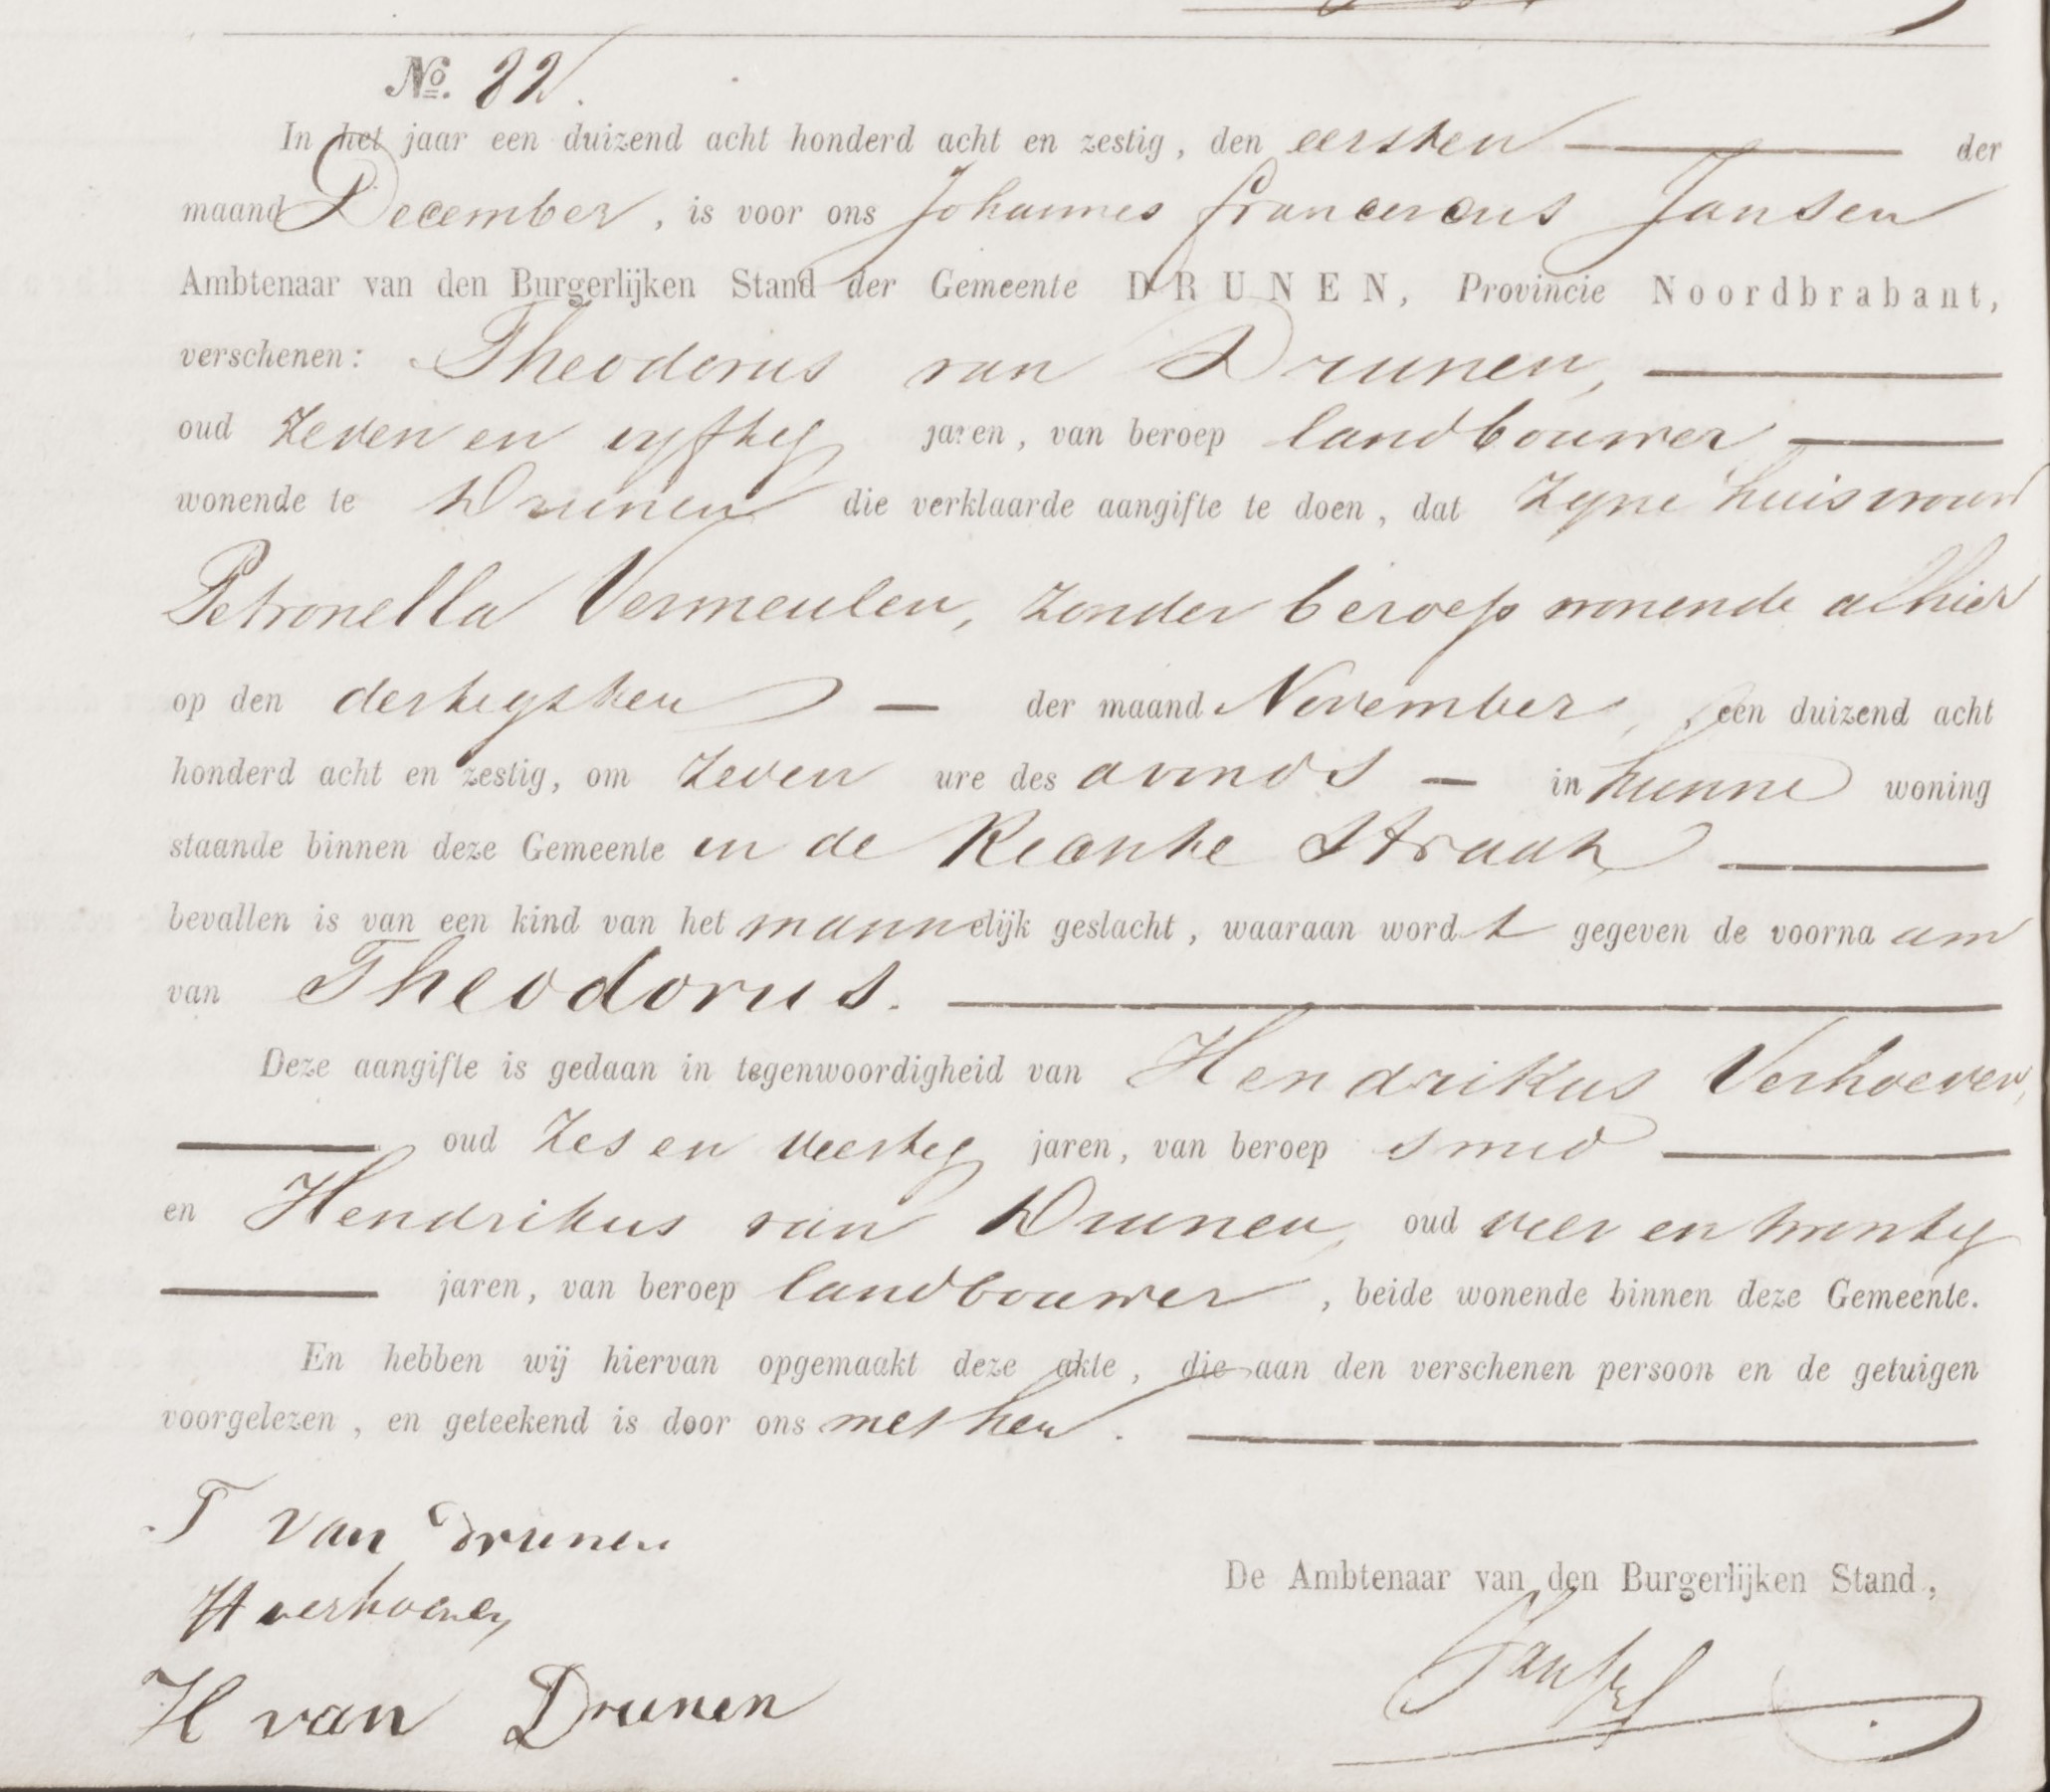 No. 82.
In het jaar een duizend acht honderd acht en zestig, den eersten der
maand December, is voor ons Johannes Franciscus Jansen
Ambtenaar van den Burgerlijken Stand der Gemeente DRUNEN, Provincie Noordbrabant,
verschenen: Theodorus van Drunen,
oud zeven en vyftig jaren, van beroep landbouwer
wonende te Drunen die verklaarde aangifte te doen, dat zyne huisvrouw
Petronella Vermeulen, zonder beroep wonende alhier
op den dertigsten der maand November, een duizend acht
honderd acht en zestig, om zeven ure des avonds in hunne woning
staande binnen deze Gemeente in de Straat
bevallen is van een kind van het mannelijk geslacht, waaraan wordt gegeven de voornaam
van Theodorus.
Deze aangifte is gedaan in tegenwoordigheid van Hendrikus Verhoeven,
oud zes en veertig jaren, van beroep smid
en Hendrikus van Drunen, oud vier en twintig
jaren, van beroep landbouwer, beide wonende binnen deze Gemeente.
En hebben wij hiervan opgemaakt deze akte, die aan den verschenen persoon en de getuigen
voorgelezen, en geteekend is door ons met hen.
T van Drunen
H verhoeven
De Ambtenaar van den Burgerlijken Stand,
H van Drunen
Jansen